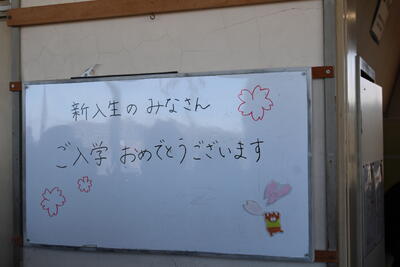 新入生のみなさん
ご入学おめでとうございます